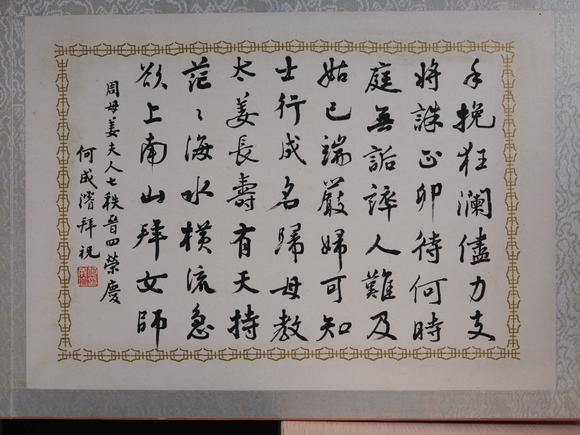 手挽狂瀾儘力支
將誅正卯待何時
庭無詬誶人難及
姑已端嚴婦可知
士行成名歸母教
太姜長壽有天持
茫々海水橫流急
欲上南山拜女師
周母姜夫人七秩晉四榮慶
何成濬拜祝